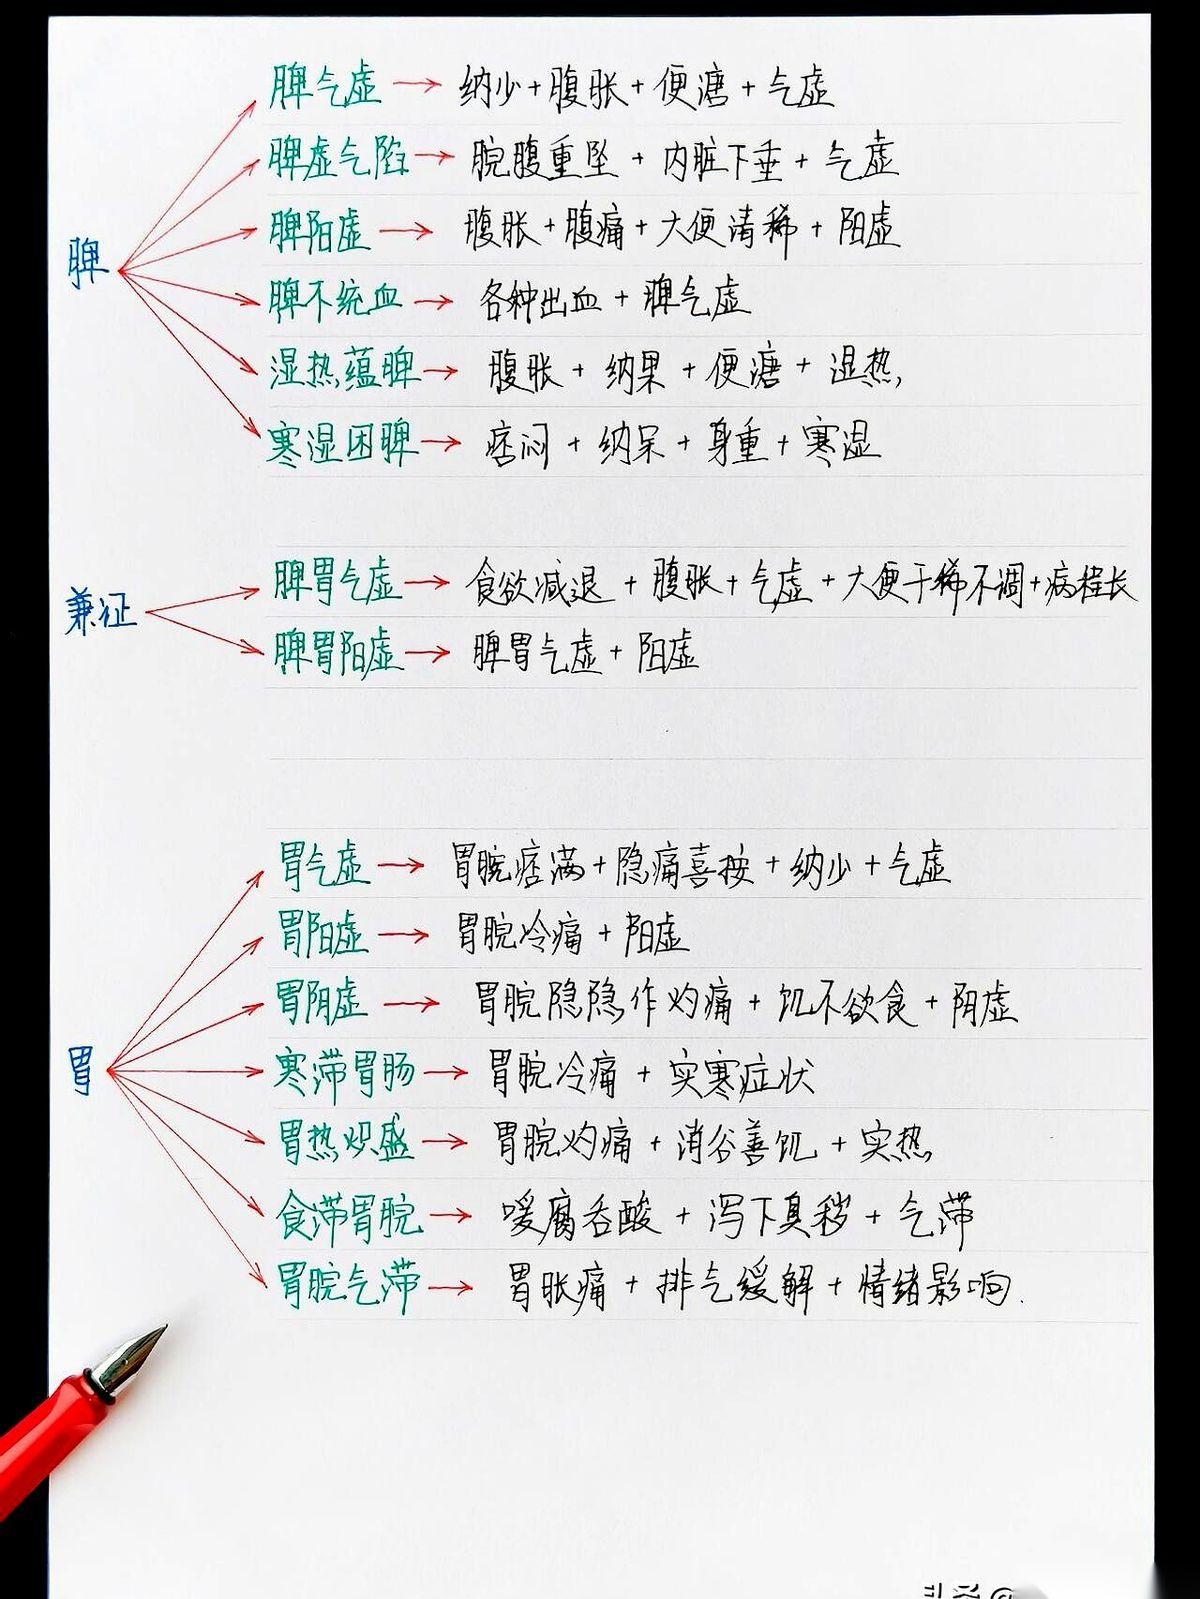 脾气虚 → 纳少+腹胀+便溏+气虚
脾虚气陷 → 脘腹重坠+内脏下垂+气虚
脾阳虚 → 腹胀+腹痛+大便清稀+阳虚
脾
脾不统血 → 各种出血+脾气虚
湿热蕴脾 → 腹胀+纳果+便溏+湿热,
寒湿困脾 → 痞闷+纳呆+身重+寒湿
脾胃气虚 → 食欲减退+腹胀+气虚+大便干稀不调+病程长
兼证
脾胃阳虚 → 脾胃气虚+阳虚
胃气虚 → 胃脘痞满+隐痛喜按+纳少+气虚
胃阳虚 → 胃脘冷痛+阳虚
胃阴虚 → 胃脘隐隐作灼痛+饥不欲食+阴虚
胃
寒滞胃肠 → 胃脘冷痛+实寒症状
胃热炽盛 → 胃脘灼痛+消谷善饥+实热,
食滞胃脘 → 嗳腐吞酸+泻下臭秽+气滞
胃脘气滞 → 胃胀痛+排气缓解+情绪影响.